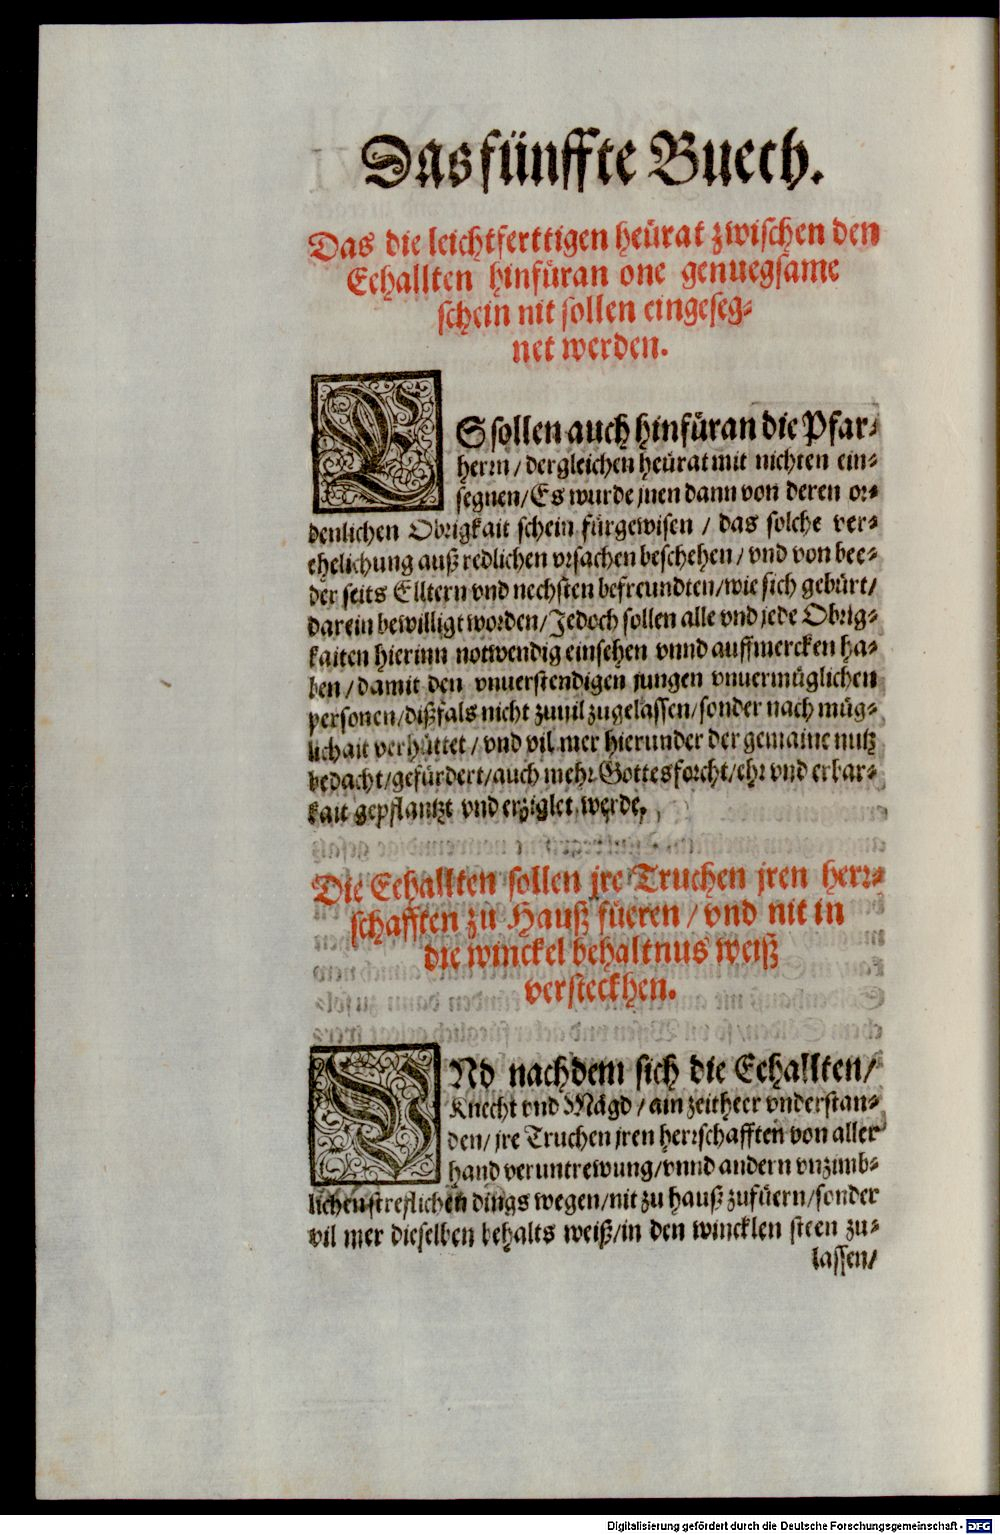 Das fünffte Buech.
Das die leichtferttigen heürat zwischen den
Eehallten hinfüran one genuegsame
schein nit sollen eingeseg⸗
net werden.
ES sollen auch hinfüran die Pfar⸗
herrn / dergleichen heürat mit nichten ein⸗
segnen / Es wurde jnen dann von deren or⸗
denlichen Obrigkait schein fürgewisen / das solche ver⸗
ehelichung auß redlichen vrsachen beschehen / vnd von bee⸗
der seits Elltern vnd nechsten befreundten / wie sich gebürt /
darein bewilligt worden / Jedoch sollen alle vnd jede Obrig⸗
kaiten hierinn notwendig einsehen vnnd auffmercken ha⸗
ben / damit den vnuerstendigen jungen vnuermüglichen
personen / dißfals nicht zuuil zugelassen / sonder nach müg⸗
lichait verhüttet / vnd vil mer hierunder der gemaine nutz
bedacht / gefürdert / auch mehr Gottesforcht / ehr vnd erbar⸗
kait gepflantzt vnd erziglet werde.
Die Eehallten sollen jre Truchen jren herr⸗
schafften zu Hauß füeren / vnd nit in
die winckel behaltnus weiß
versteckhen.
VNd nachdem sich die Eehallten /
Knecht vnd Mägd / ain zeitheer vnderstan⸗
den / jre Truchen jren herrschafften von aller
hand veruntrewung / vnnd andern vnzimb⸗
lichen streflichen dings wegen / nit zu hauß zufüern / sonder
vil mer dieselben behalts weiß / in den wincklen steen zu⸗
lassen /
Digitalisierung gefördert durch die Deutsche Forschungsgemeinschaft - DFG